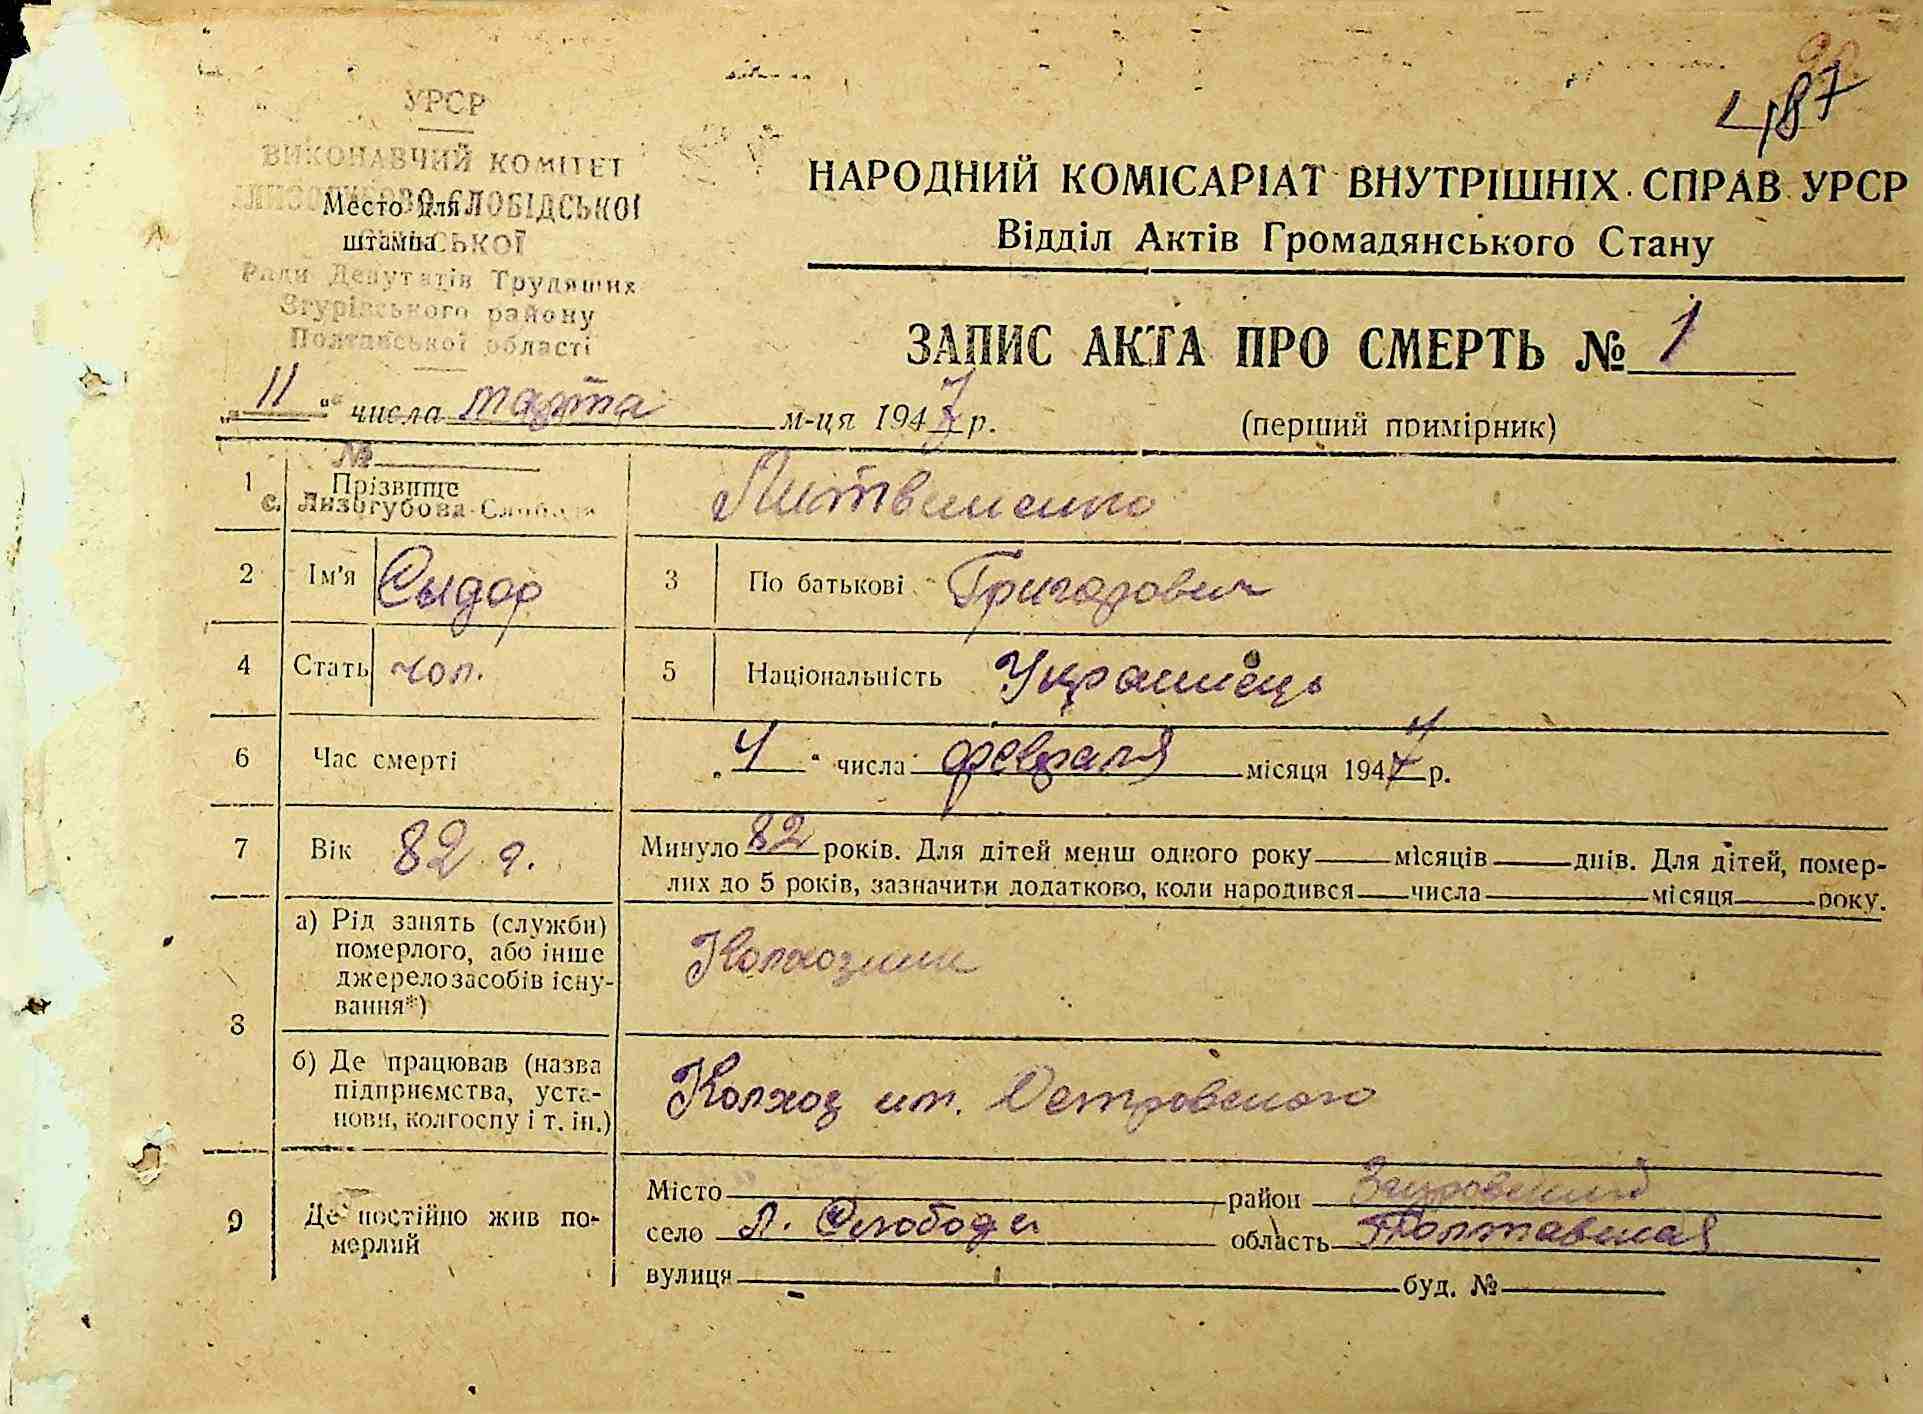 487
УРСР
ВИКОНАВЧИЙ КОМІТЕТ
СЛОБІДСЬКОЇ
Место для
штампа
Ради Депутатів Трудящих
Згурівського району
Полтавської області
НАРОДНИЙ КОМІСАРІАТ ВНУТРІШНІХ СПРАВ УРСР
Відділ Актів Громадянського Стану
ЗАПИС АКТА ПРО СМЕРТЬ № 1
„11“ числа марта м-ця 1947 р.
(перший примірник)
№
1 Прізвище Литвиненко
с. Лизогубова-Слобода
2 Ім'я Сыдор 3 По батькові Григорович
4 Стать чол. 5 Національність Українець
6 Час смерті „4“ числа февраля місяця 194 р.
7 Вік 82 г. Минуло 82 років. Для дітей менш одного року місяців днів. Для дітей, помер-
лих до 5 років, зазначити додатково, коли народився числа місяця року.
8 а) Рід занять (служби)
померлого, або інше
джерело засобів існу-
вання*)
Колхозник
б) Де працював (назва
підприємства, уста-
нови, колгоспу і т. ін.)
Колхоз им. Островского
9 Де постійно жив по-
мерлий
Місто район Згуровский
село Л. Слобода область Полтавская
вулиця буд. №